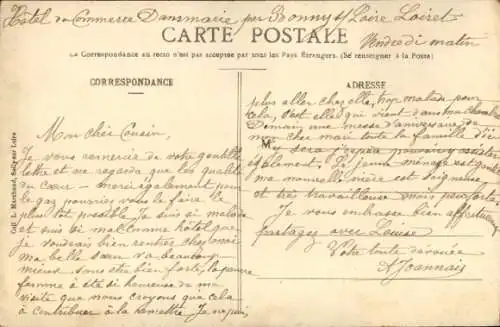 Hôtel du Commerce Dammarie par Bonny s/ Loire Loiret
CARTE POSTALE
Vendredi matin
La Correspondance au recto n'est pas acceptée par tous les Pays Étrangers. (Se renseigner à la Poste)
CORRESPONDANCE
Mon cher Cousin,
Je vous remercie de votre gentille
lettre et me regarde que les qualités
du cœur – merci également pour
le gaz pourriez vous le faire le
plus tôt possible Je suis si malade
et suis si mal comme hôtel que
je voudrais bien rentrer chez moi
ma belle sœur va beaucoup
mieux sans être bien forte, la pauvre
femme a été si heureuse de ma
visite que nous croyons que cela
à contribuer à la remettre. Je ne puis
ADRESSE
plus aller chez elle, trop malade pour
cela, c'est elle qui vient dans ma chambre
Demain une messe d'anniversaire de
mon cher mari toute la famille d'ici
M
sera
pouvoir assister
également. Le jeune ménage est gentil
ma nouvelle nièce est soigneuse
et très travailleuse mais peu forte
Je vous embrasse bien affectueusement
partagez avec Louise
Votre toute dévouée
A Joannais
Coll. L. Marchand, Sully-sur-Loire